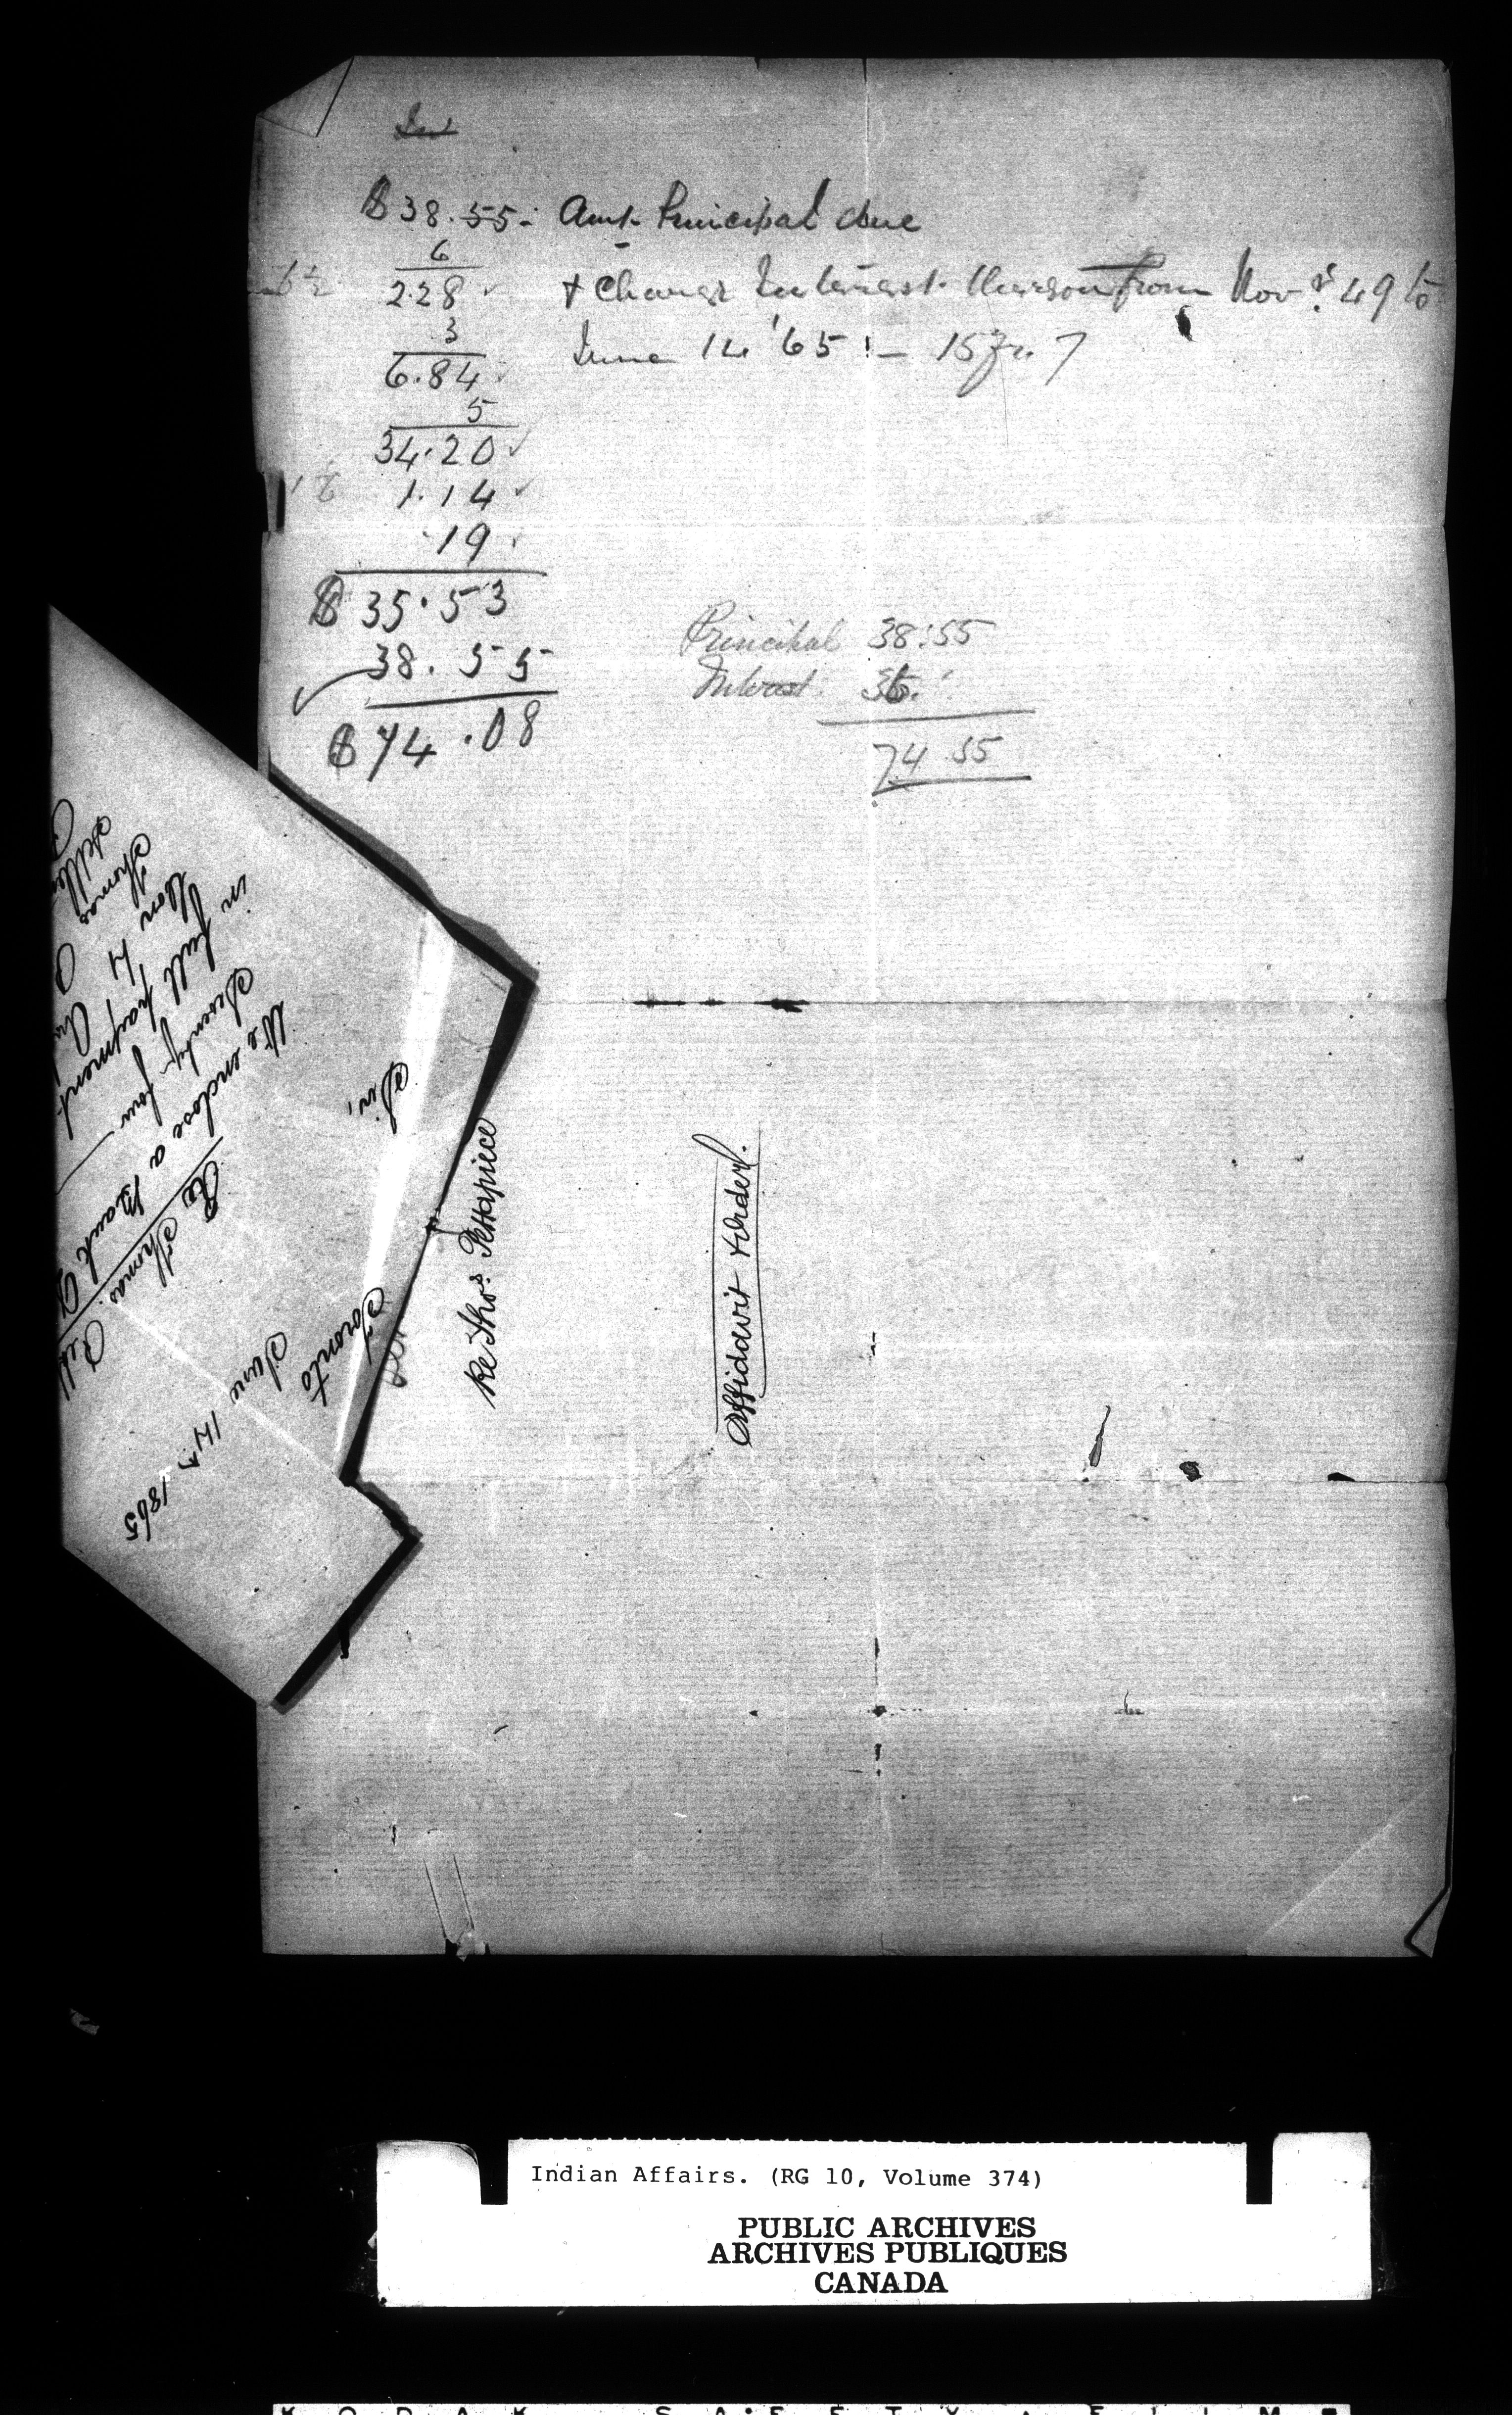 $38.55- Amt. Principal due
6
2.28 + Charge Interest thereon from Nov. '49 to
3
6.84 June 14 '65 :- 15 yr. 7
5
34.20
1.14
.19
$35.53
38.55
$74.08
Principal 38:55
Interest 36.
74 55
Toronto
June 14th 1865
Sir,
Re Thomas Pett
We enclose a Bank
Seventy four
in full payment
Thomas
Re Thos. Pettapiece
Affidavit & Order.
Indian Affairs. (RG 10, Volume 374)
PUBLIC ARCHIVES
ARCHIVES PUBLIQUES
CANADA
KODAK SAFETY FILM